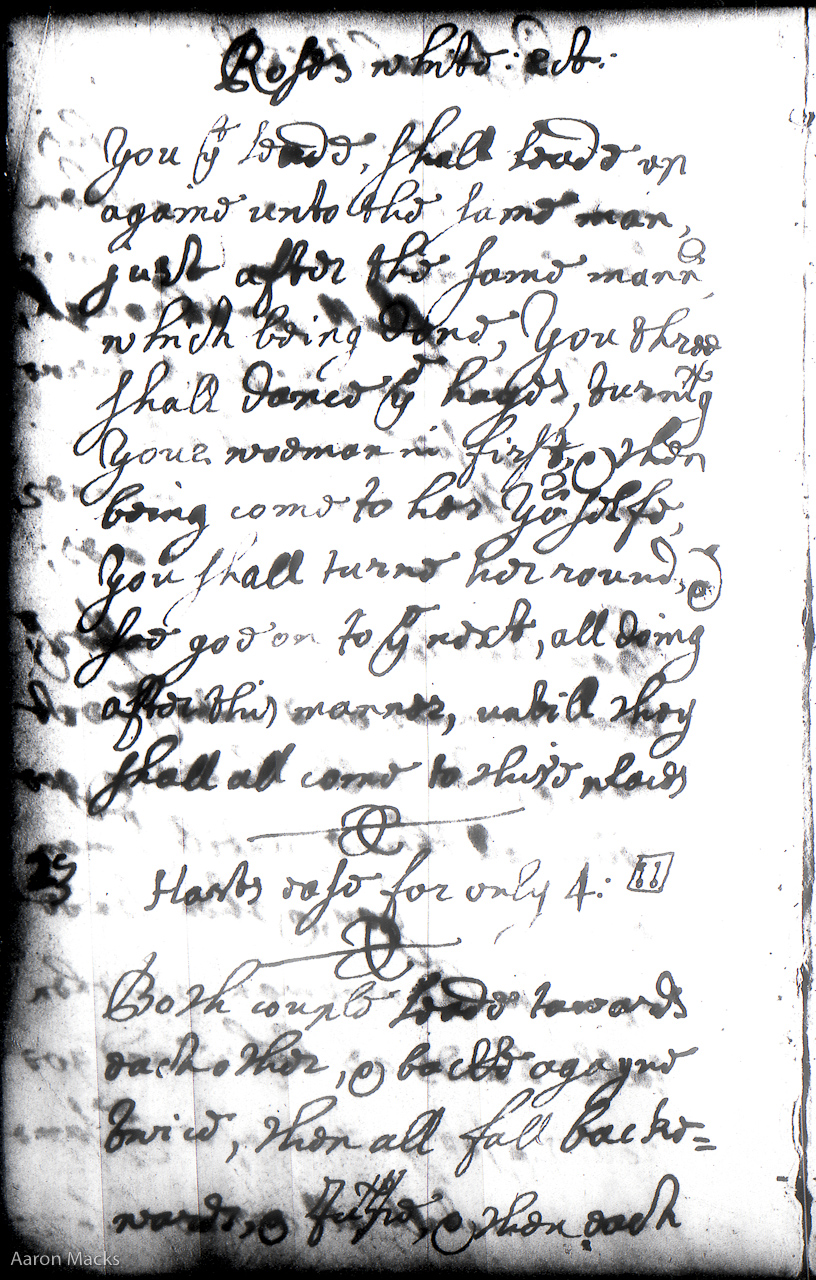 Roses white: ect:
You yͤ leade, shall leade up
againe unto the same man,
just after the same mann
which being done, You three
shall dance yͤ hayes, turning
Your woeman in first, & then
being come to her Yoͬ selfe,
You shall turne her round, &
shee goe on to yͤ next, all doing
after this manner, untill they
shall all come to their places
Harts ease for only 4:
Both couple leade towards
each other, & backe agayne
twice, then all fall backe=
wards, & then each
Aaron Macks